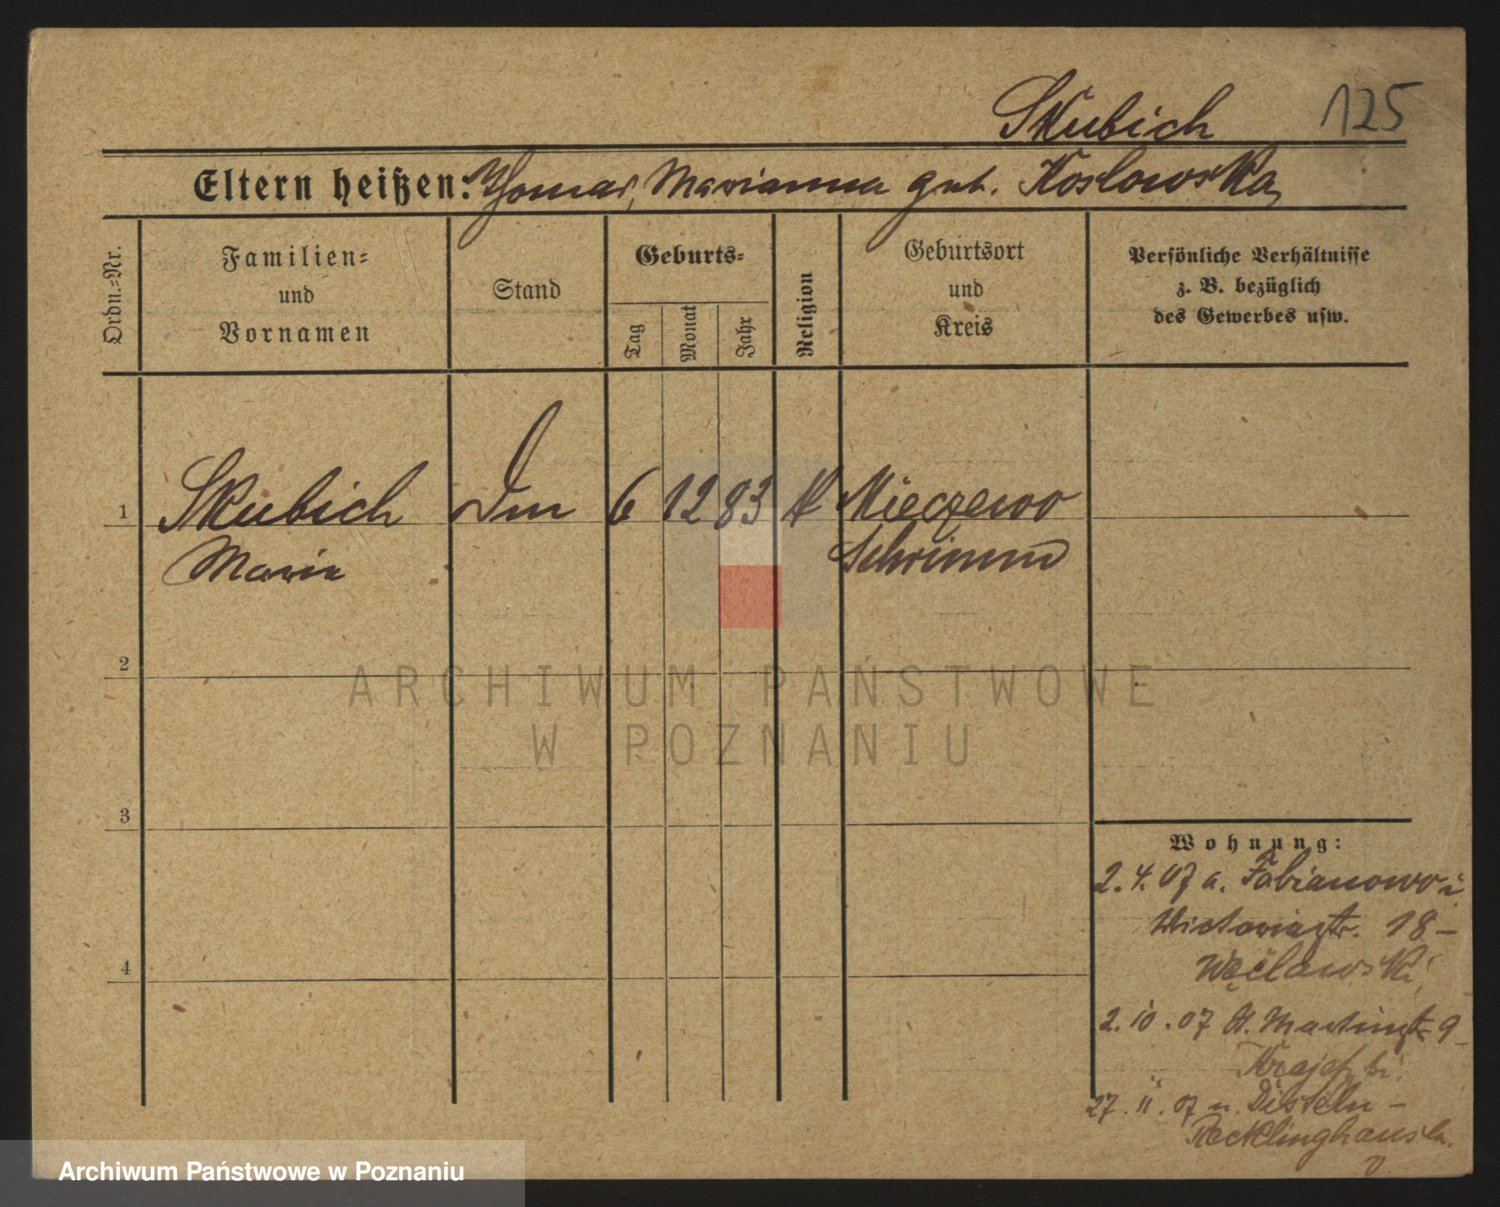 Skubich 125
Eltern heißen: Thomas, Marianna geb. Koslowska
Ordn.-Nr.
Familien- und Vornamen
Stand
Geburts-
Tag
Monat
Jahr
Religion
Geburtsort und Kreis
Persönliche Verhältnisse
z. B. bezüglich
des Gewerbes usw.
1 Skubich 6 12 83 K Mieczewo
Marie Schrimm
2
ARCHIWUM PAŃSTWOWE
W POZNANIU
3
Wohnung:
2.4.07 a. Fabianowo
Victoriastr. 18 –
Węclawski
4
2.10.07 St. Martinstr. 9
27.11.07 n. Disteln –
Recklinghausen
Archiwum Państwowe w Poznaniu